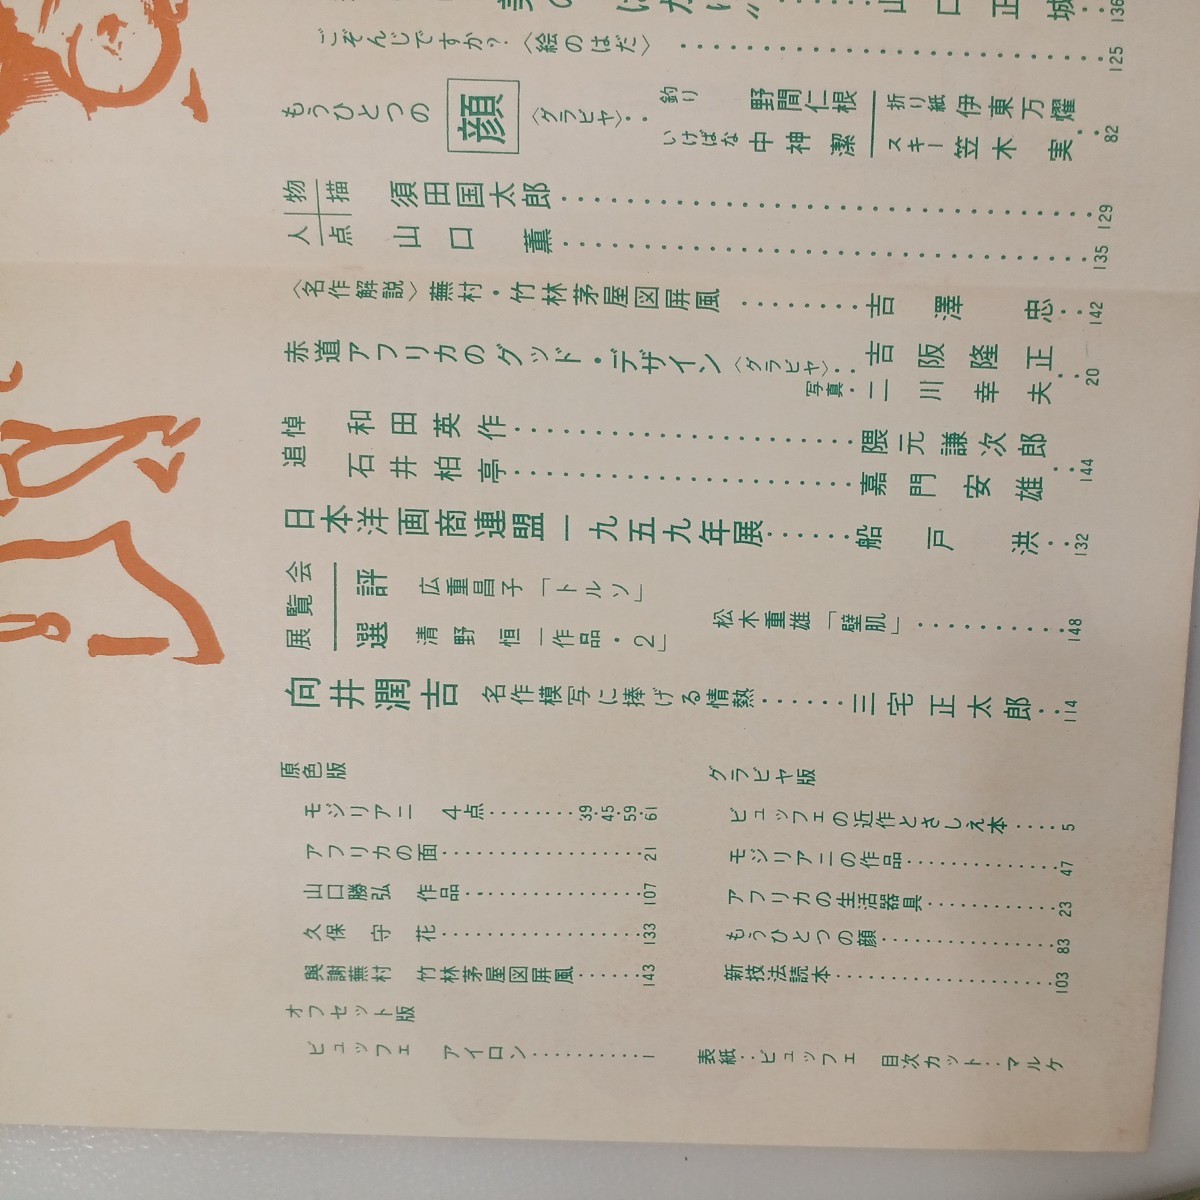 山口正城‥136
ごぞんじですか?〈絵のはだ〉‥‥‥‥‥‥‥‥125
もうひとつの顔〈グラビヤ〉‥
釣り 野間仁根
いけばな 中神潔
折り紙 伊東万燿
スキー 笠木実‥82
人物点描
須田国太郎‥‥‥‥‥‥‥‥‥‥129
山口薫‥‥‥‥‥‥‥‥‥‥135
〈名作解説〉蕪村・竹林茅屋図屏風‥‥‥‥吉澤忠‥142
赤道アフリカのグッド・デザイン〈グラビヤ〉‥吉阪隆正
写真・二川幸夫‥20
追悼
和田英作‥‥‥‥‥‥‥‥隈元謙次郎
石井柏亭‥‥‥‥‥‥‥‥嘉門安雄‥144
日本洋画商連盟一九五九年展‥‥‥船戸洪‥132
展覧会選評
広重昌子「トルソ」
清野恒「作品・2」
松木重雄「壁肌」‥‥‥‥‥148
向井潤吉 名作模写に捧げる情熱‥‥‥三宅正太郎‥114
原色版
モジリアニ 4点‥‥‥‥39.45.59.61
アフリカの面‥‥‥‥‥‥21
山口勝弘 作品‥‥‥‥‥‥107
久保守 花‥‥‥‥‥‥133
與謝蕪村 竹林茅屋図屏風‥‥‥143
オフセット版
ビュッフェ アイロン‥‥‥‥‥1
グラビヤ版
ビュッフェの近作とさしえ本‥‥5
モジリアニの作品‥‥‥‥‥‥47
アフリカの生活器具‥‥‥‥‥23
もうひとつの顔‥‥‥‥‥‥83
新技法読本‥‥‥‥‥‥‥103
表紙‥ビュッフェ 目次カット‥マルケ